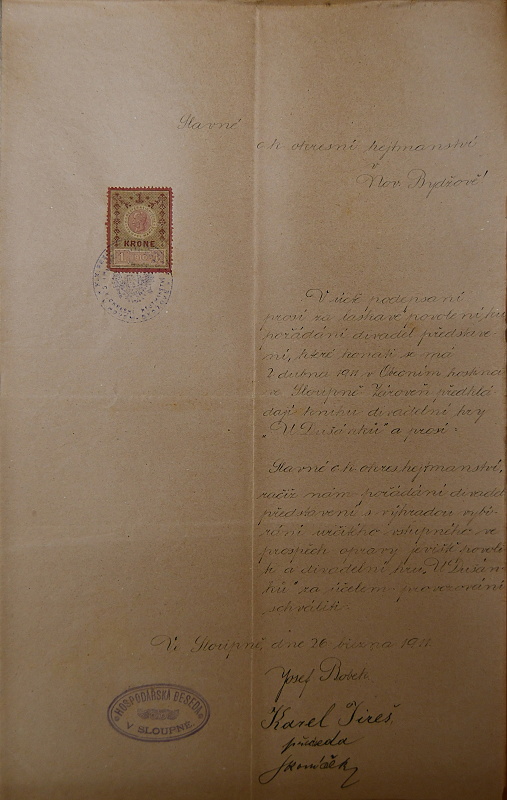 Slavné
c k okresní hejtmanství
v
Nov. Bydžově!
1
KRONE
V úctě podepsaní
prosí za laskavé povolení ku
pořádání divadel. představe-
ní, které konati se má
2 dubna 1911 v Obecním hostinci
ve Sloupně. Zároveň předklá-
dají knihu divadelní hry
"U Dušánků" a prosí:
Slavné c. k. okres. hejtmanství,
račiž nám pořádání divadel.
představení s výhradou vybí-
rání určitého vstupného ve
prospěch opravy jeviště povoli-
ti a divadelní hru "U Dušán-
ků" za účelem provozování
schváliti.
Ve Sloupně, dne 26 března 1911.
Josef Bobek
HOSPODÁŘSKÁ BESEDA
V SLOUPNĚ
Karel Jireš
předseda